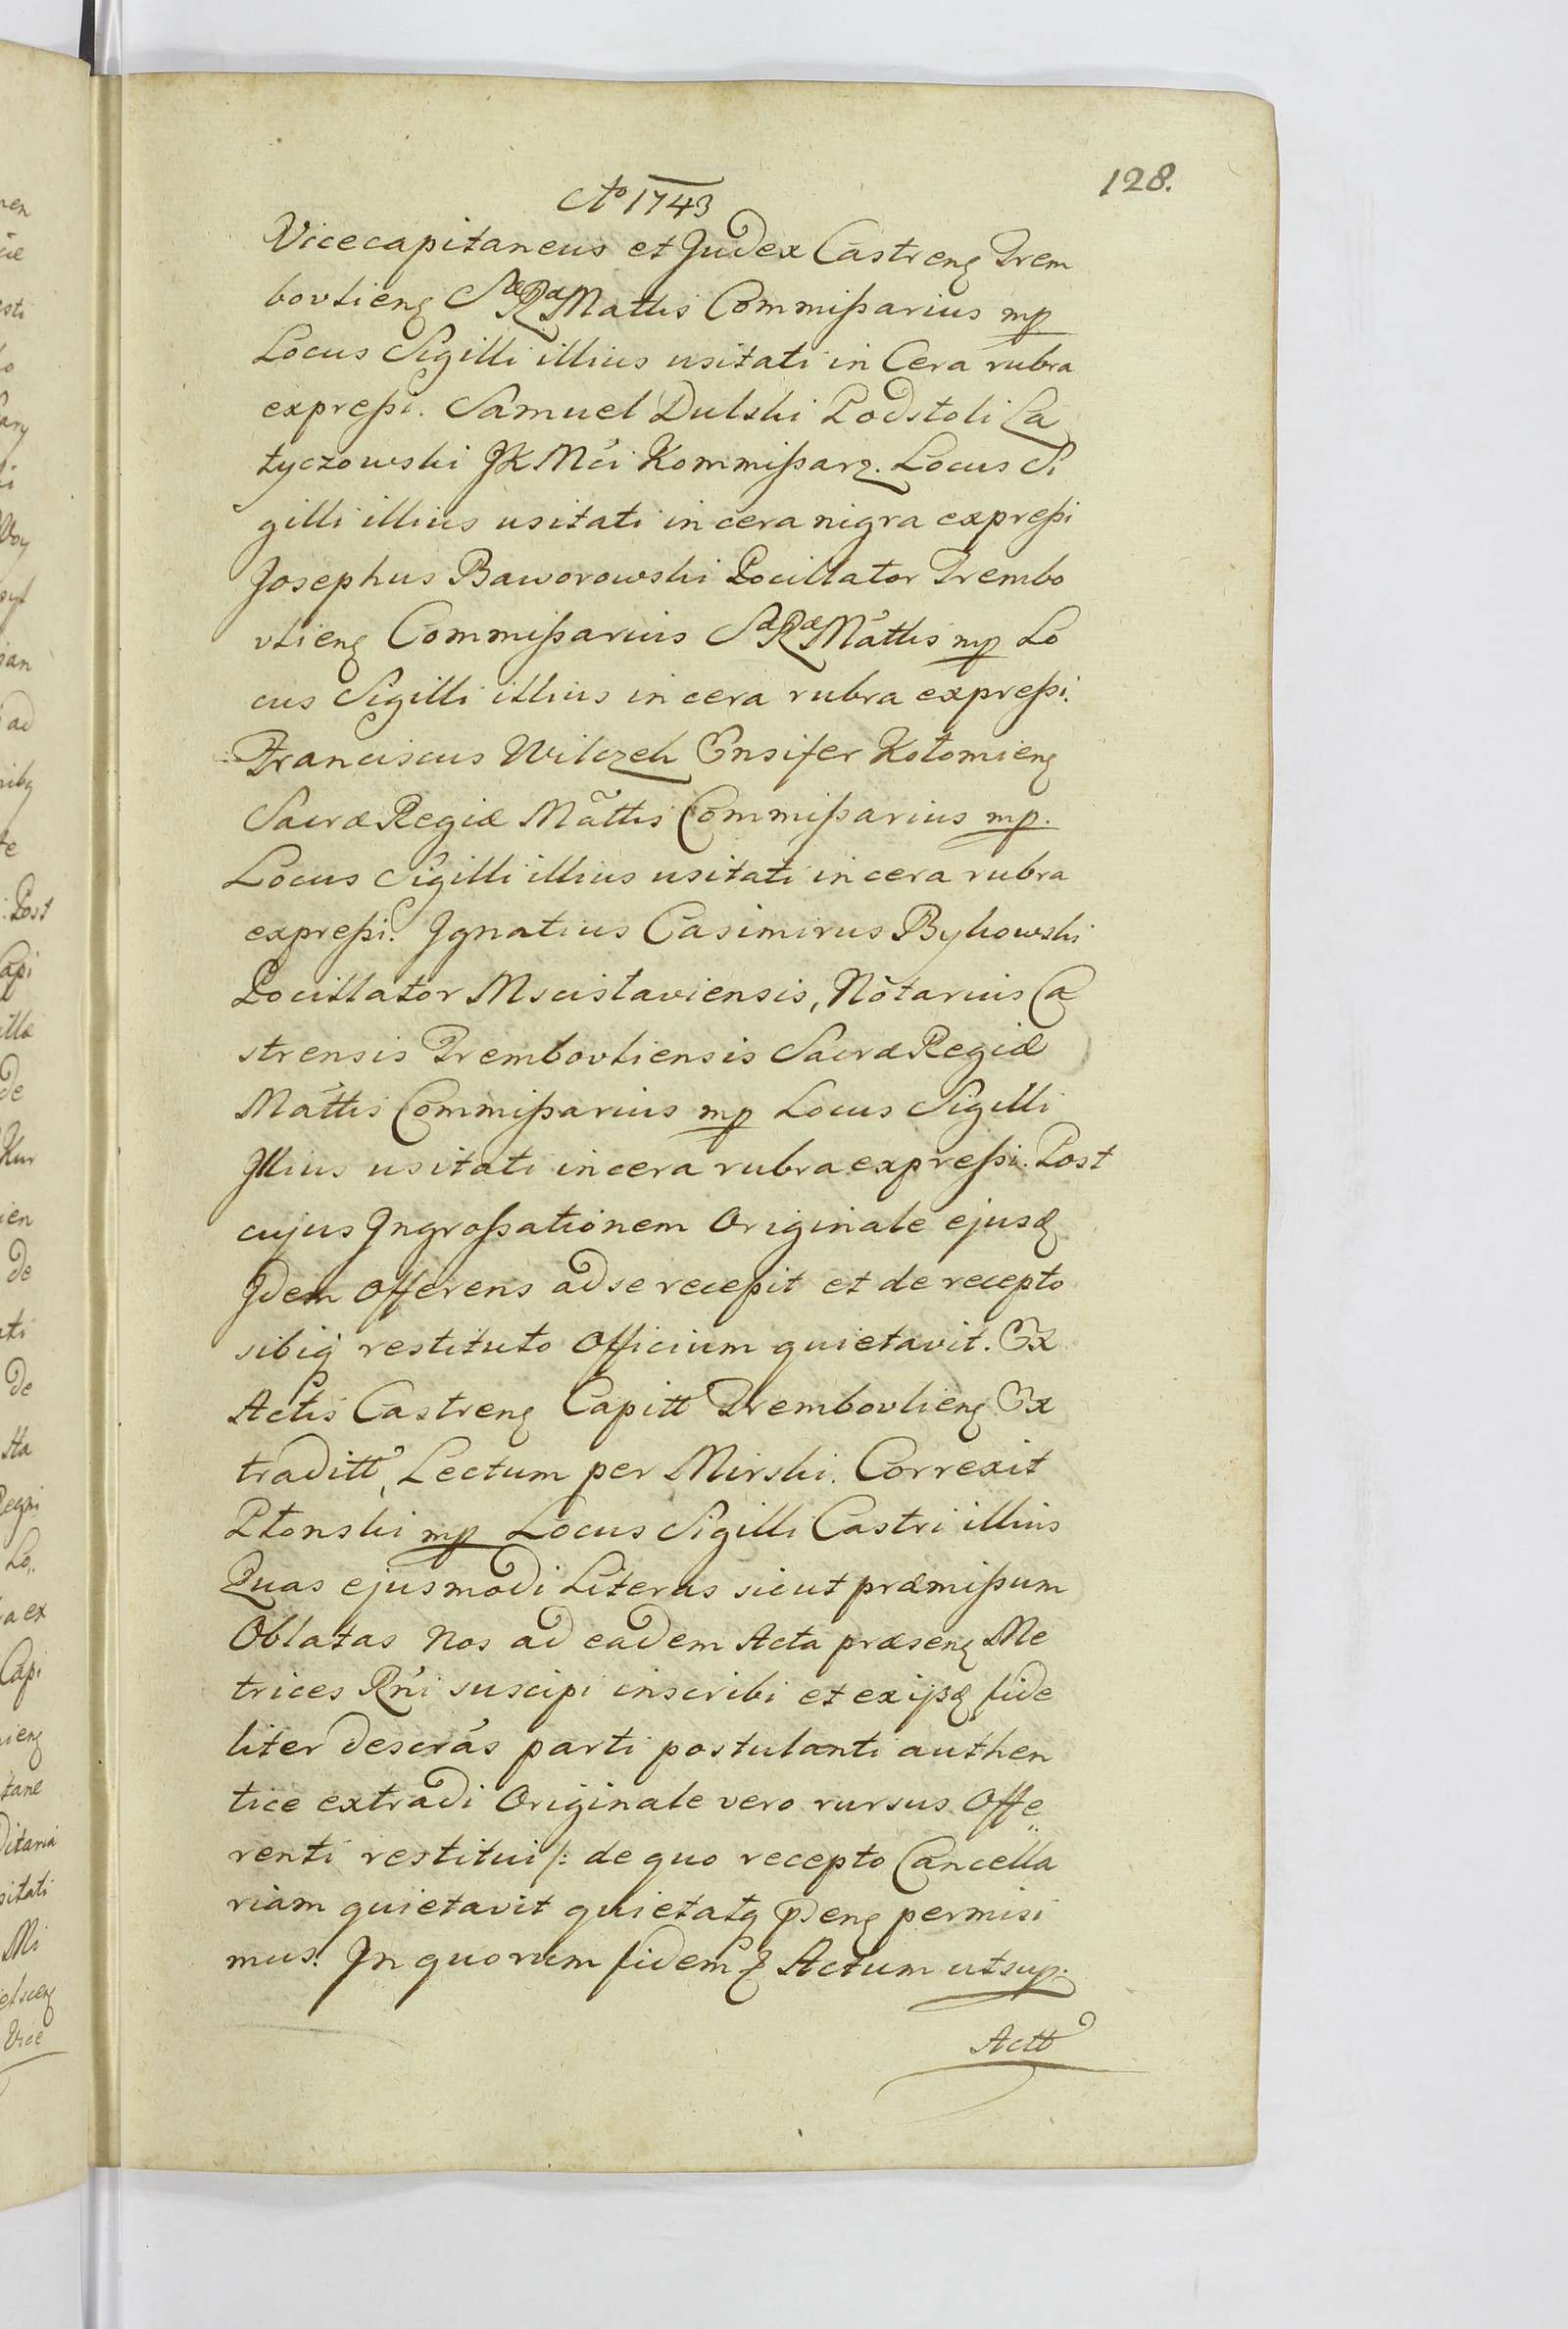 128.
Aō 1743
Vicecapitaneus et Judex Castreñ Trem
bovlieñ SæRæMattis Commißarius mp
Locus Sigilli illius usitati in Cera rubra
expreßi. Samuel Dulski Podstoli La
tyczowski JKMći Kommißarz. Locus Si
gilli illius usitati in cera nigra expreßi
Josephus Baworowski Pocillator Trembo
vlieñ Commißarius SæRæMattis mp Lo
cus Sigilli illius in cera rubra expreßi.
Franciscus Wilczek Ensifer Kołomieñ
Sacræ Regiæ Mattis Commißarius mp.
Locus Sigilli illius usitati in cera rubra
expreßi. Ignatius Casimirus Bykowski
Pocillator Mscislaviensis, Notarius Ca
strensis Trembovliensis Sacræ Regiæ
Mattis Commißarius mp Locus Sigilli
Illius usitati in cera rubra expreßi. Post
cujus Ingroßationem Originale ejusd
Idem Offerens ad se recepit et de recepto
sibiq restituto Officium quietavit. Ex
Actis Castreñ Capitt Trembovlieñ Ex
traditt, Lectum per Mirski. Correxit
Płonski mp Locus Sigilli Castri illius
Quas ejusmodi Literas sicut præmißum
Oblatas Nos ad eadem Acta præseñ Me
trices Rni suscipi inscribi et ex ijsd fide
liter descras parti postulanti authen
tice extradi Originale vero rursus Offe„
renti restitui /: de quo recepto Cancella
riam quietavit quietatq pdeñ permisi
mus. In quorum fidem & Actum ut sup.
Actt